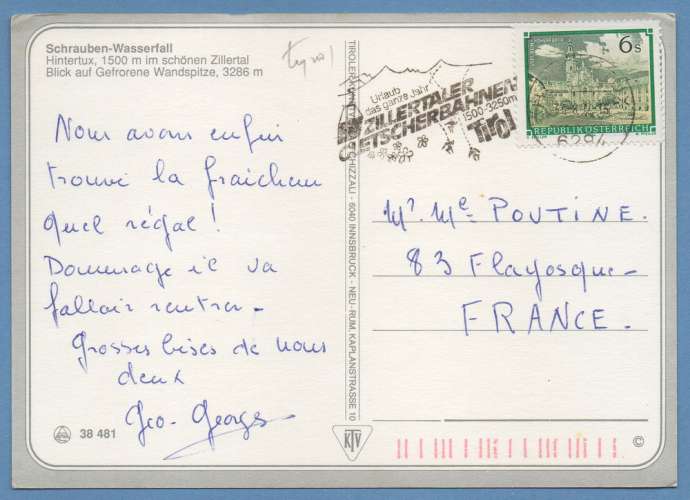 Schrauben-Wasserfall
Hintertux, 1500 m im schönen Zillertal
Blick auf Gefrorene Wandspitze, 3286 m
Nous avons enfin
trouvé la fraîcheur
quel régal !
Dommage il va
falloir rentrer -
Grosses bises de nous
deux
Geo - Georges
38 481
SCHIZZALI - 6040 INNSBRUCK - NEU-RUM, KAPLANSTRASSE 10
KTV
Urlaub
das ganze Jahr
ZILLERTALER
GLETSCHERBAHNEN
1500-3250m
Tirol
6s
REPUBLIK ÖSTERREICH
6294
Mr. Me POUTINE.
83 Flayosque -
FRANCE.
©